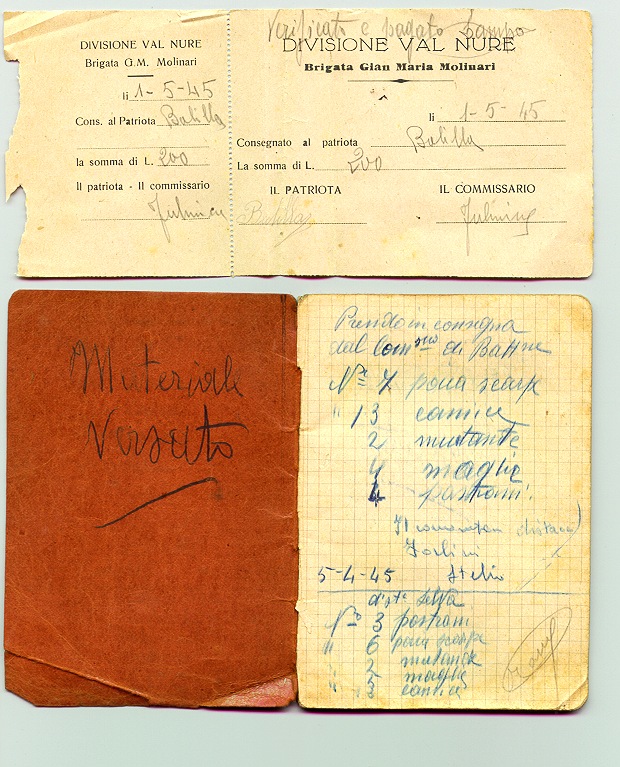 DIVISIONE VAL NURE
Brigata G.M. Molinari
li 1-5-45
Cons. al Patriota Balilla
la somma di L. 200
Il patriota - Il commissario
Verificato e pagato
DIVISIONE VAL NURE
Brigata Gian Maria Molinari
li 1-5-45
Consegnato al patriota Balilla
La somma di L. 200
IL PATRIOTA IL COMMISSARIO
Balilla
Materiale
Versato
Prendo in consegna
dal Com di Battne
N° 7 paia scarpe
" 13 camice
2 mutante
4 maglie
4 pastrani
Il
5-4-45 Stelio
Selva
N° 3 pastrani
" 6 paia scarpe
2 mutande
" 2 maglie
" 3 camice